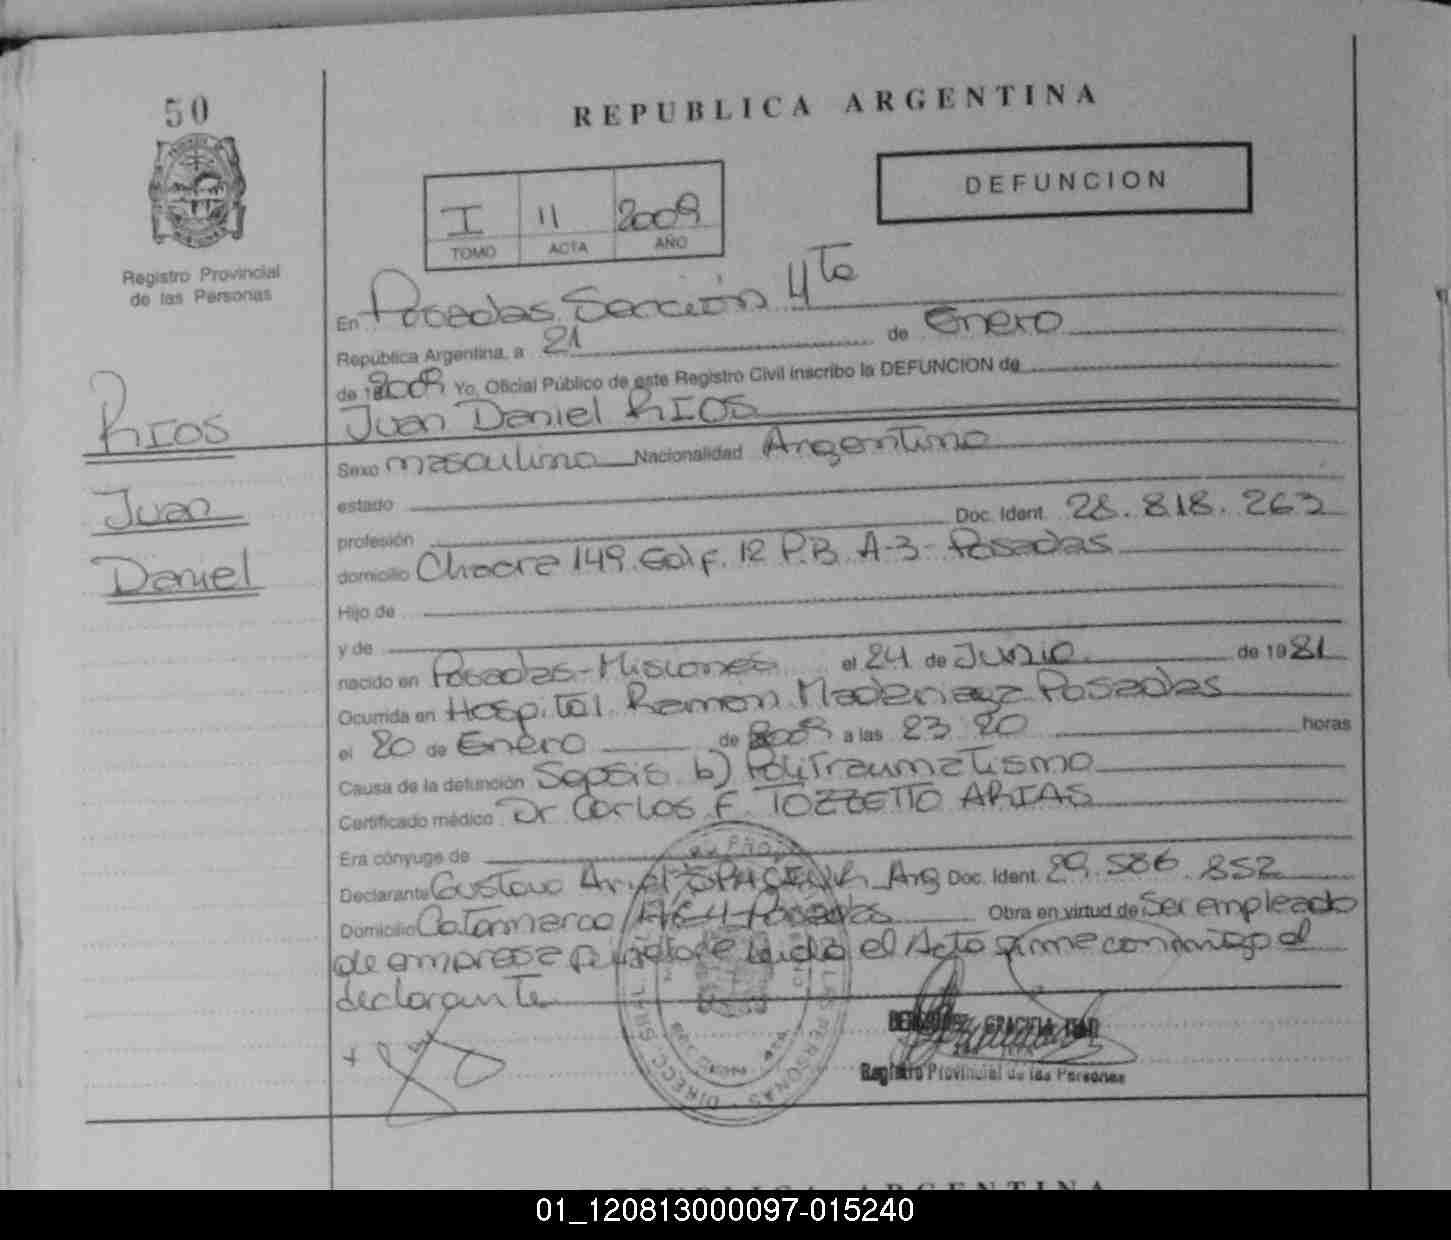 50
REPUBLICA ARGENTINA
DEFUNCION
I 11 2009
TOMO ACTA AÑO
Registro Provincial
de las Personas
En Posadas Sección 4ta
República Argentina, a 21 de Enero
de 2009 Yo, Oficial Público de este Registro Civil inscribo la DEFUNCION de
Juan Daniel RIOS
RIOS
Juan
Daniel
Sexo masculino Nacionalidad Argentino
estado
profesión Doc. Ident. 28.818.263
domicilio Chacra 149 Edif. 12 P.B. A-3 - Posadas
Hijo de
y de
nacido en Posadas-Misiones el 24 de Junio de 1981
Ocurrida en Hospital Ramon Madariaga Posadas
el 20 de Enero de 2009 a las 23 20 horas
Causa de la defunción Sepsis b) Politraumatismo
Certificado médico Dr Carlos F. TOZZETTO ARIAS
Era cónyuge de
Declarante Gustavo Ariel Arg Doc. Ident. 29.586.852
Domicilio Catamarca Posadas Obra en virtud de Ser empleado
de empresa el Acto firma conmigo el
declarante
GRACIELA
Registro Provincial de las Personas
REPUBLICA ARGENTINA
01_120813000097-015240